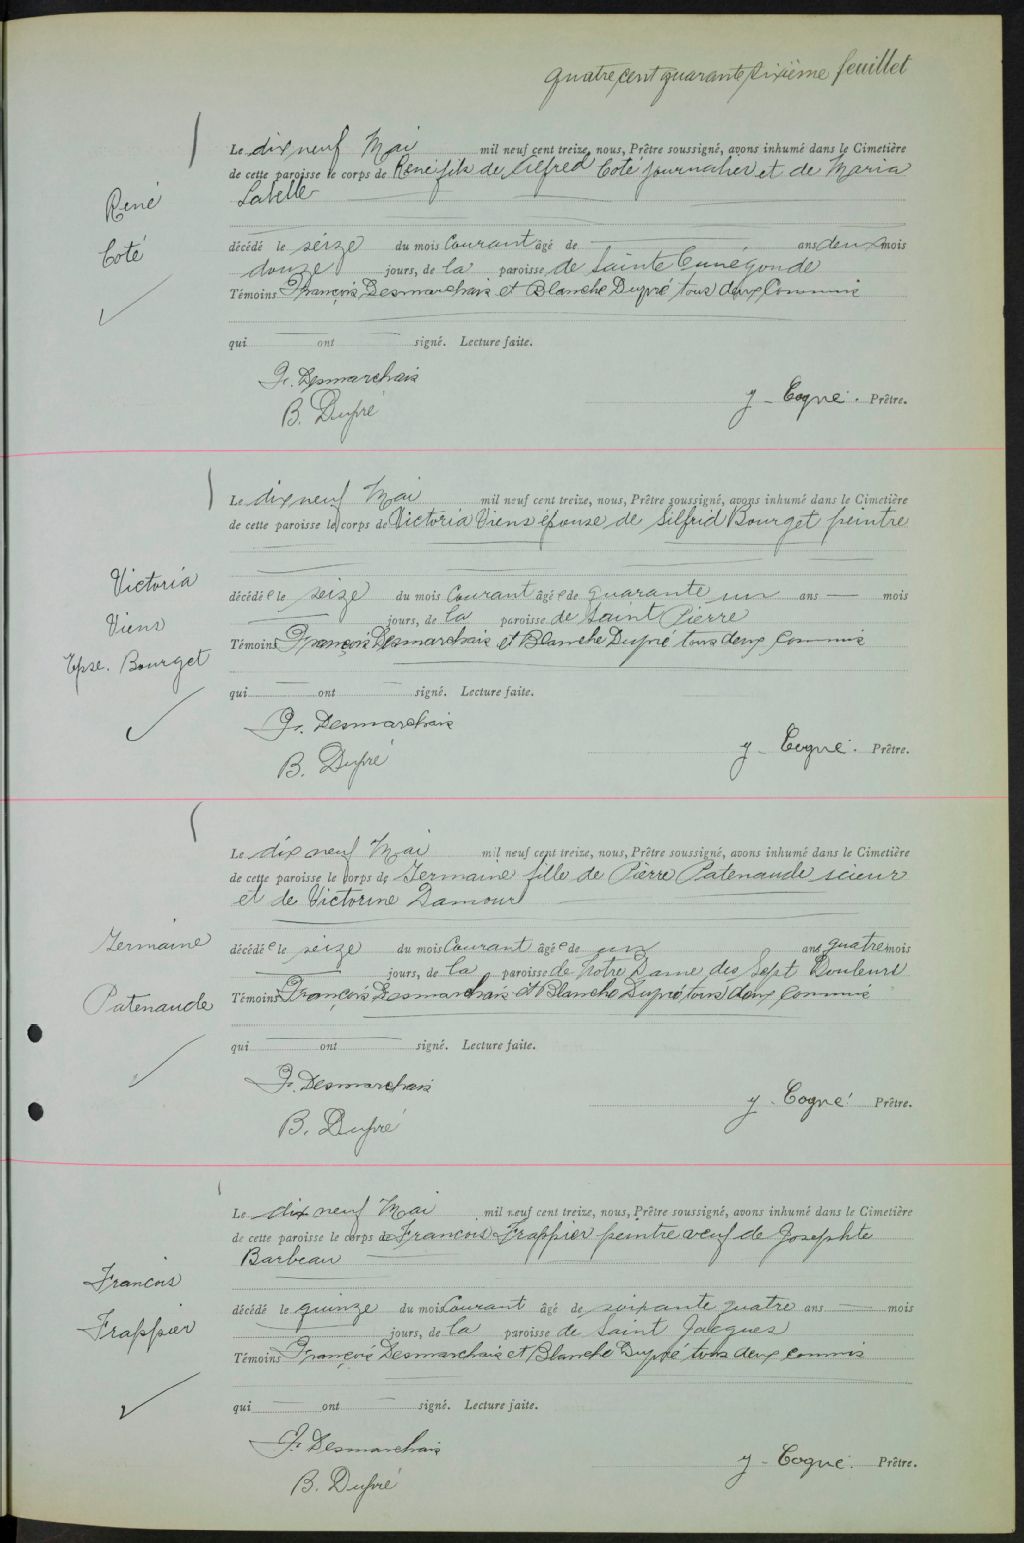 quatre cent quarante sixième feuillet
Le dix neuf Mai mil neuf cent treize, nous, Prêtre soussigné, avons inhumé dans le Cimetière
de cette paroisse le corps de René fils de Alfred Coté journalier et de Maria
Labelle
René
Coté
décédé le seize du mois Courant âgé de ans deux mois
douze jours, de la paroisse de Sainte Cunégonde
Témoins François Desmarchais et Blanche Dupré tous deux Commis
qui ont signé. Lecture faite.
Fr. Desmarchais
B. Dupré
y - Cogné. Prêtre.
Le dix neuf Mai mil neuf cent treize, nous, Prêtre soussigné, avons inhumé dans le Cimetière
de cette paroisse le corps de Victoria Viens épouse de Silfrid Bourget peintre
Victoria
Viens
Epse. Bourget
décédée le seize du mois Courant âgée de quarante un ans — mois
jours, de la paroisse de Saint Pierre
Témoins François Desmarchais et Blanche Dupré tous deux Commis
qui ont signé. Lecture faite.
Fr. Desmarchais
B. Dupré
y - Cogné. Prêtre.
Le dix neuf Mai mil neuf cent treize, nous, Prêtre soussigné, avons inhumé dans le Cimetière
de cette paroisse le corps de Germaine fille de Pierre Patenaude scieur
et de Victorine Damour
Germaine
Patenaude
décédée le seize du mois Courant âgée de un ans quatre mois
jours, de la paroisse de Notre Dame des Sept Douleurs
Témoins François Desmarchais et Blanche Dupré tous deux Commis
qui ont signé. Lecture faite.
Fr. Desmarchais
B. Dupré
y - Cogné Prêtre.
Le dix neuf Mai mil neuf cent treize, nous, Prêtre soussigné, avons inhumé dans le Cimetière
de cette paroisse le corps de Francois Frappier peintre veuf de Josephte
Barbeau
Francois
Frappier
décédé le quinze du mois Courant âgé de soixante quatre ans — mois
jours, de la paroisse de Saint Jacques
Témoins François Desmarchais et Blanche Dupré tous deux Commis
qui — ont signé. Lecture faite.
Fr. Desmarchais
B. Dupré
y - Cogné. Prêtre.